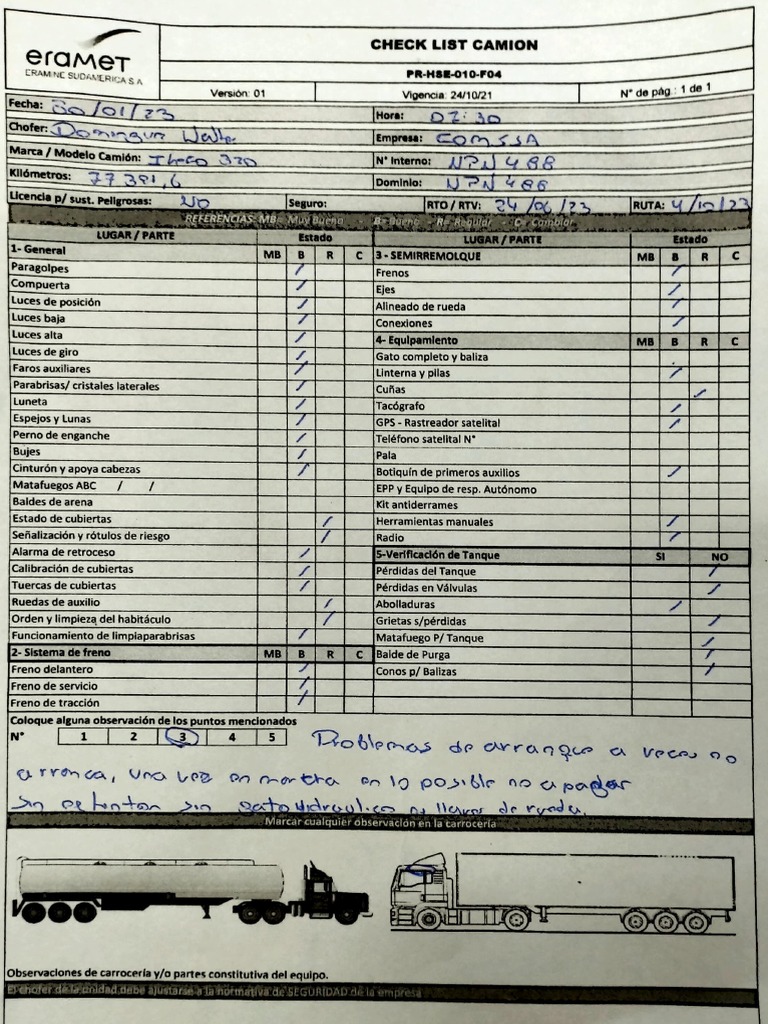 eramet
ERAMINE SUDAMERICA S.A
CHECK LIST CAMION
PR-HSE-010-F04
Versión: 01 Vigencia: 24/10/21 N° de pág : 1 de 1
Fecha: 30/01/23 Hora: 07:30
Chofer: Domingun Walte Empresa: COMSSA
Marca / Modelo Camión: Iveco 320 N° Interno: NPN 488
Kilómetros: 77391,6 Dominio: NPN 488
Licencia p/ sust. Peligrosas: NO Seguro: RTO / RTV: 24/06/23 RUTA: 4/10/23
REFERENCIAS: MB= Muy Bueno - B= Bueno - R= Regular - C= Cambiar
LUGAR / PARTE Estado LUGAR / PARTE Estado
1- General MB B R C 3 - SEMIRREMOLQUE MB B R C
Paragolpes / Frenos /
Compuerta / Ejes /
Luces de posición / Alineado de rueda /
Luces baja / Conexiones /
Luces alta / 4- Equipamiento MB B R C
Luces de giro / Gato completo y baliza
Faros auxiliares / Linterna y pilas /
Parabrisas/ cristales laterales / Cuñas /
Luneta / Tacógrafo /
Espejos y Lunas / GPS - Rastreador satelital /
Perno de enganche / Teléfono satelital N°
Bujes / Pala
Cinturón y apoya cabezas / Botiquín de primeros auxilios /
Matafuegos ABC / / EPP y Equipo de resp. Autónomo
Baldes de arena Kit antiderrames
Estado de cubiertas / Herramientas manuales /
Señalización y rótulos de riesgo / Radio /
Alarma de retroceso / 5-Verificación de Tanque SI NO
Calibración de cubiertas / Pérdidas del Tanque /
Tuercas de cubiertas / Pérdidas en Válvulas /
Ruedas de auxilio / Abolladuras /
Orden y limpieza del habitáculo / Grietas s/pérdidas /
Funcionamiento de limpiaparabrisas / Matafuego P/ Tanque /
2- Sistema de freno MB B R C Balde de Purga /
Freno delantero / Conos p/ Balizas /
Freno de servicio /
Freno de tracción /
Coloque alguna observación de los puntos mencionados
N° 1 2 3 4 5 Problemas de arranque a veces no
arranca, una vez en marcha en lo posible no apagar
sin gato hidraulico ni llave de rueda.
Marcar cualquier observación en la carrocería
Observaciones de carrocería y/o partes constitutiva del equipo.
El chofer de la unidad debe ajustarse a la normativa de SEGURIDAD de la empresa